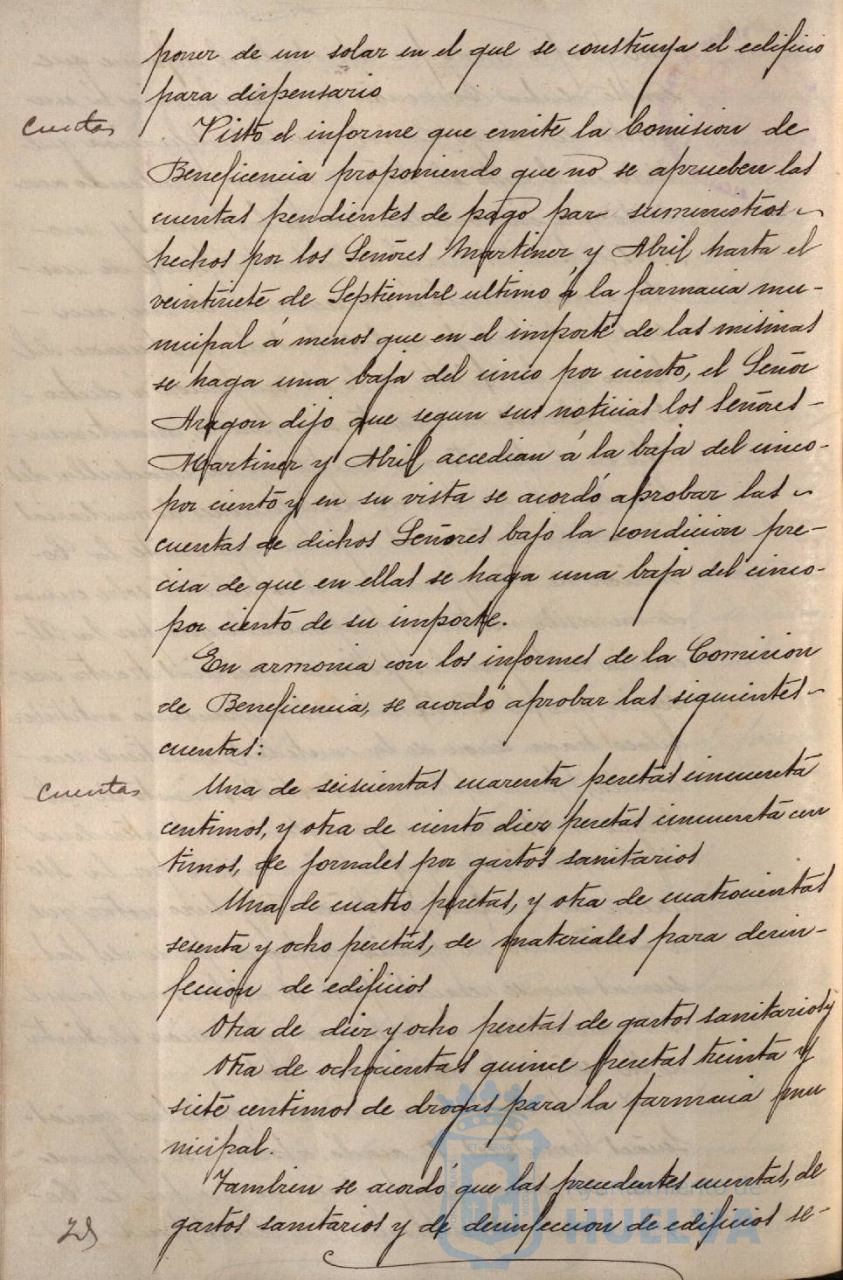 poner de un solar en el que se construya el edificio
para dispensario
Cuentas
Visto el informe que emite la Comision de
Beneficencia proponiendo que no se aprueben las
cuentas pendientes de pago por suministros
hechos por los Señores Martinez y Abril hasta el
veintisiete de Septiembre ultimo á la farmacia mu-
nicipal á menos que en el importe de las mismas
se haga una baja del cinco por ciento, el Señor
Aragon dijo que segun sus noticias los Señores
Martinez y Abril accedian á la baja del cinco
por ciento y en su vista se acordó aprobar las
cuentas de dichos Señores bajo la condicion pre-
cisa de que en ellas se haga una baja del cinco
por ciento de su importe.
En armonia con los informes de la Comision
de Beneficencia, se acordó aprobar las siguientes
cuentas:
Cuentas
Una de seiscientas cuarenta pesetas cincuenta
centimos, y otra de ciento diez pesetas cincuenta cen
timos, de jornales por gastos sanitarios
Una de cuatro pesetas, y otra de cuatrocientas
sesenta y ocho pesetas, de materiales para desin-
feccion de edificios
Otra de diez y ocho pesetas de gastos sanitarios y
Otra de ochocientas quince pesetas treinta y
siete centimos de drogas para la farmacia mu
nicipal.
Tambien se acordó que las precedentes cuentas, de
gastos sanitarios y de desinfeccion de edificios se-
HUELVA